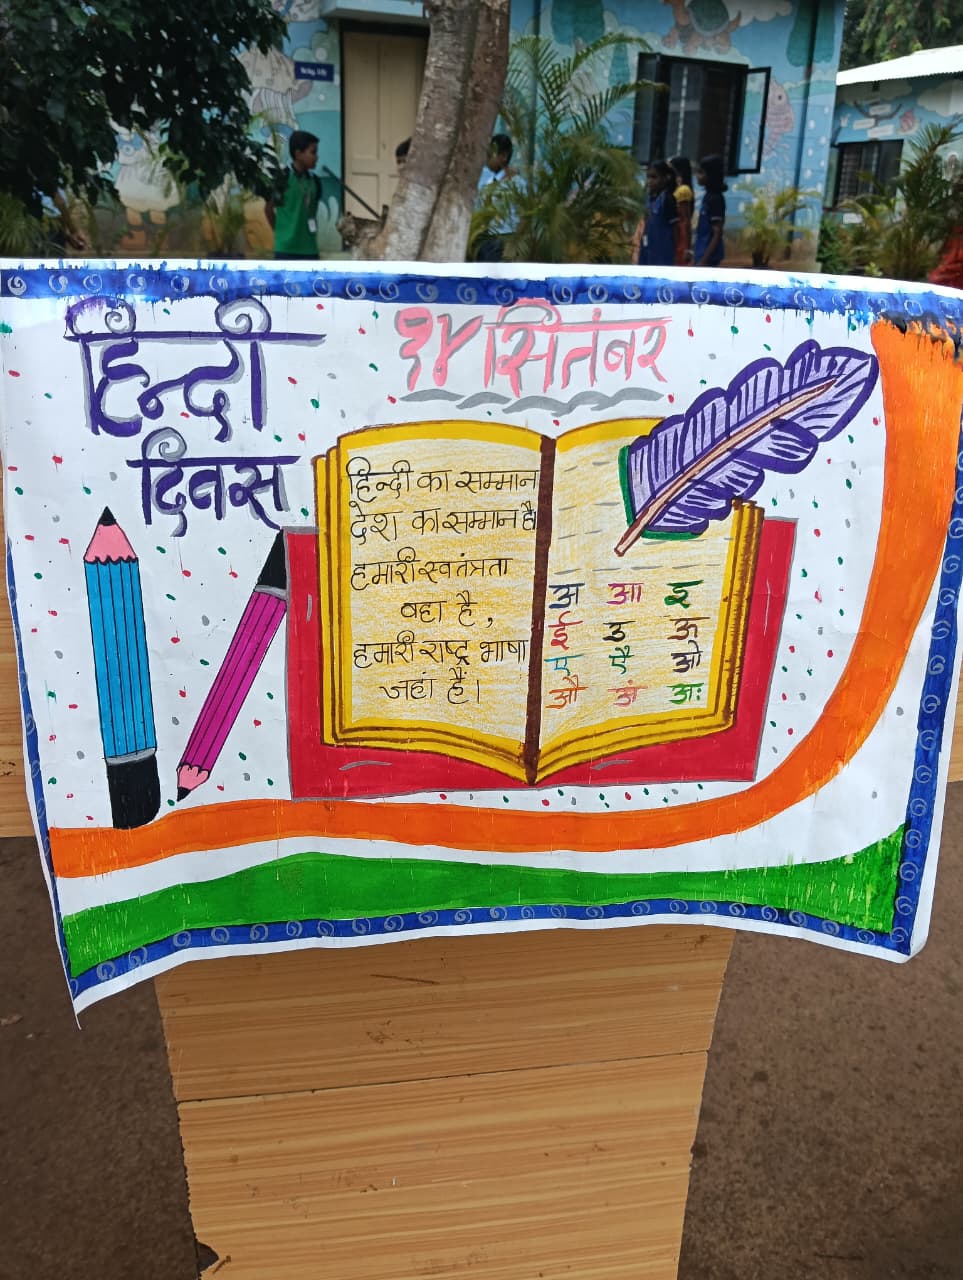 हिन्दी
दिवस
१४ सितंबर
हिन्दी का सम्मान
देश का सम्मान है।
हमारी स्वतंत्रता
वहा है,
हमारी राष्ट्र भाषा
जहां हैं।
अ आ इ
ई उ ऊ
ए ऐ ओ
औ अं अः